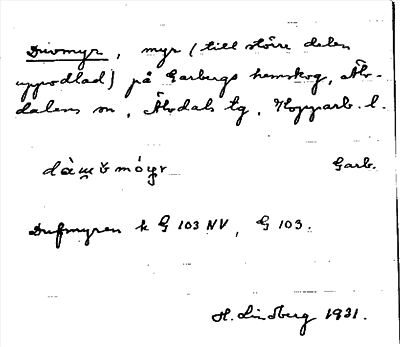 Duvmyr, myr (till större delen
uppodlad) på Garbergs hemskog, Älv-
dalens sn, Älvdals tg, Kopparb. l.
Garb.
Dufmyren k G 103 NV, G 103.
H. Lindberg 1931.